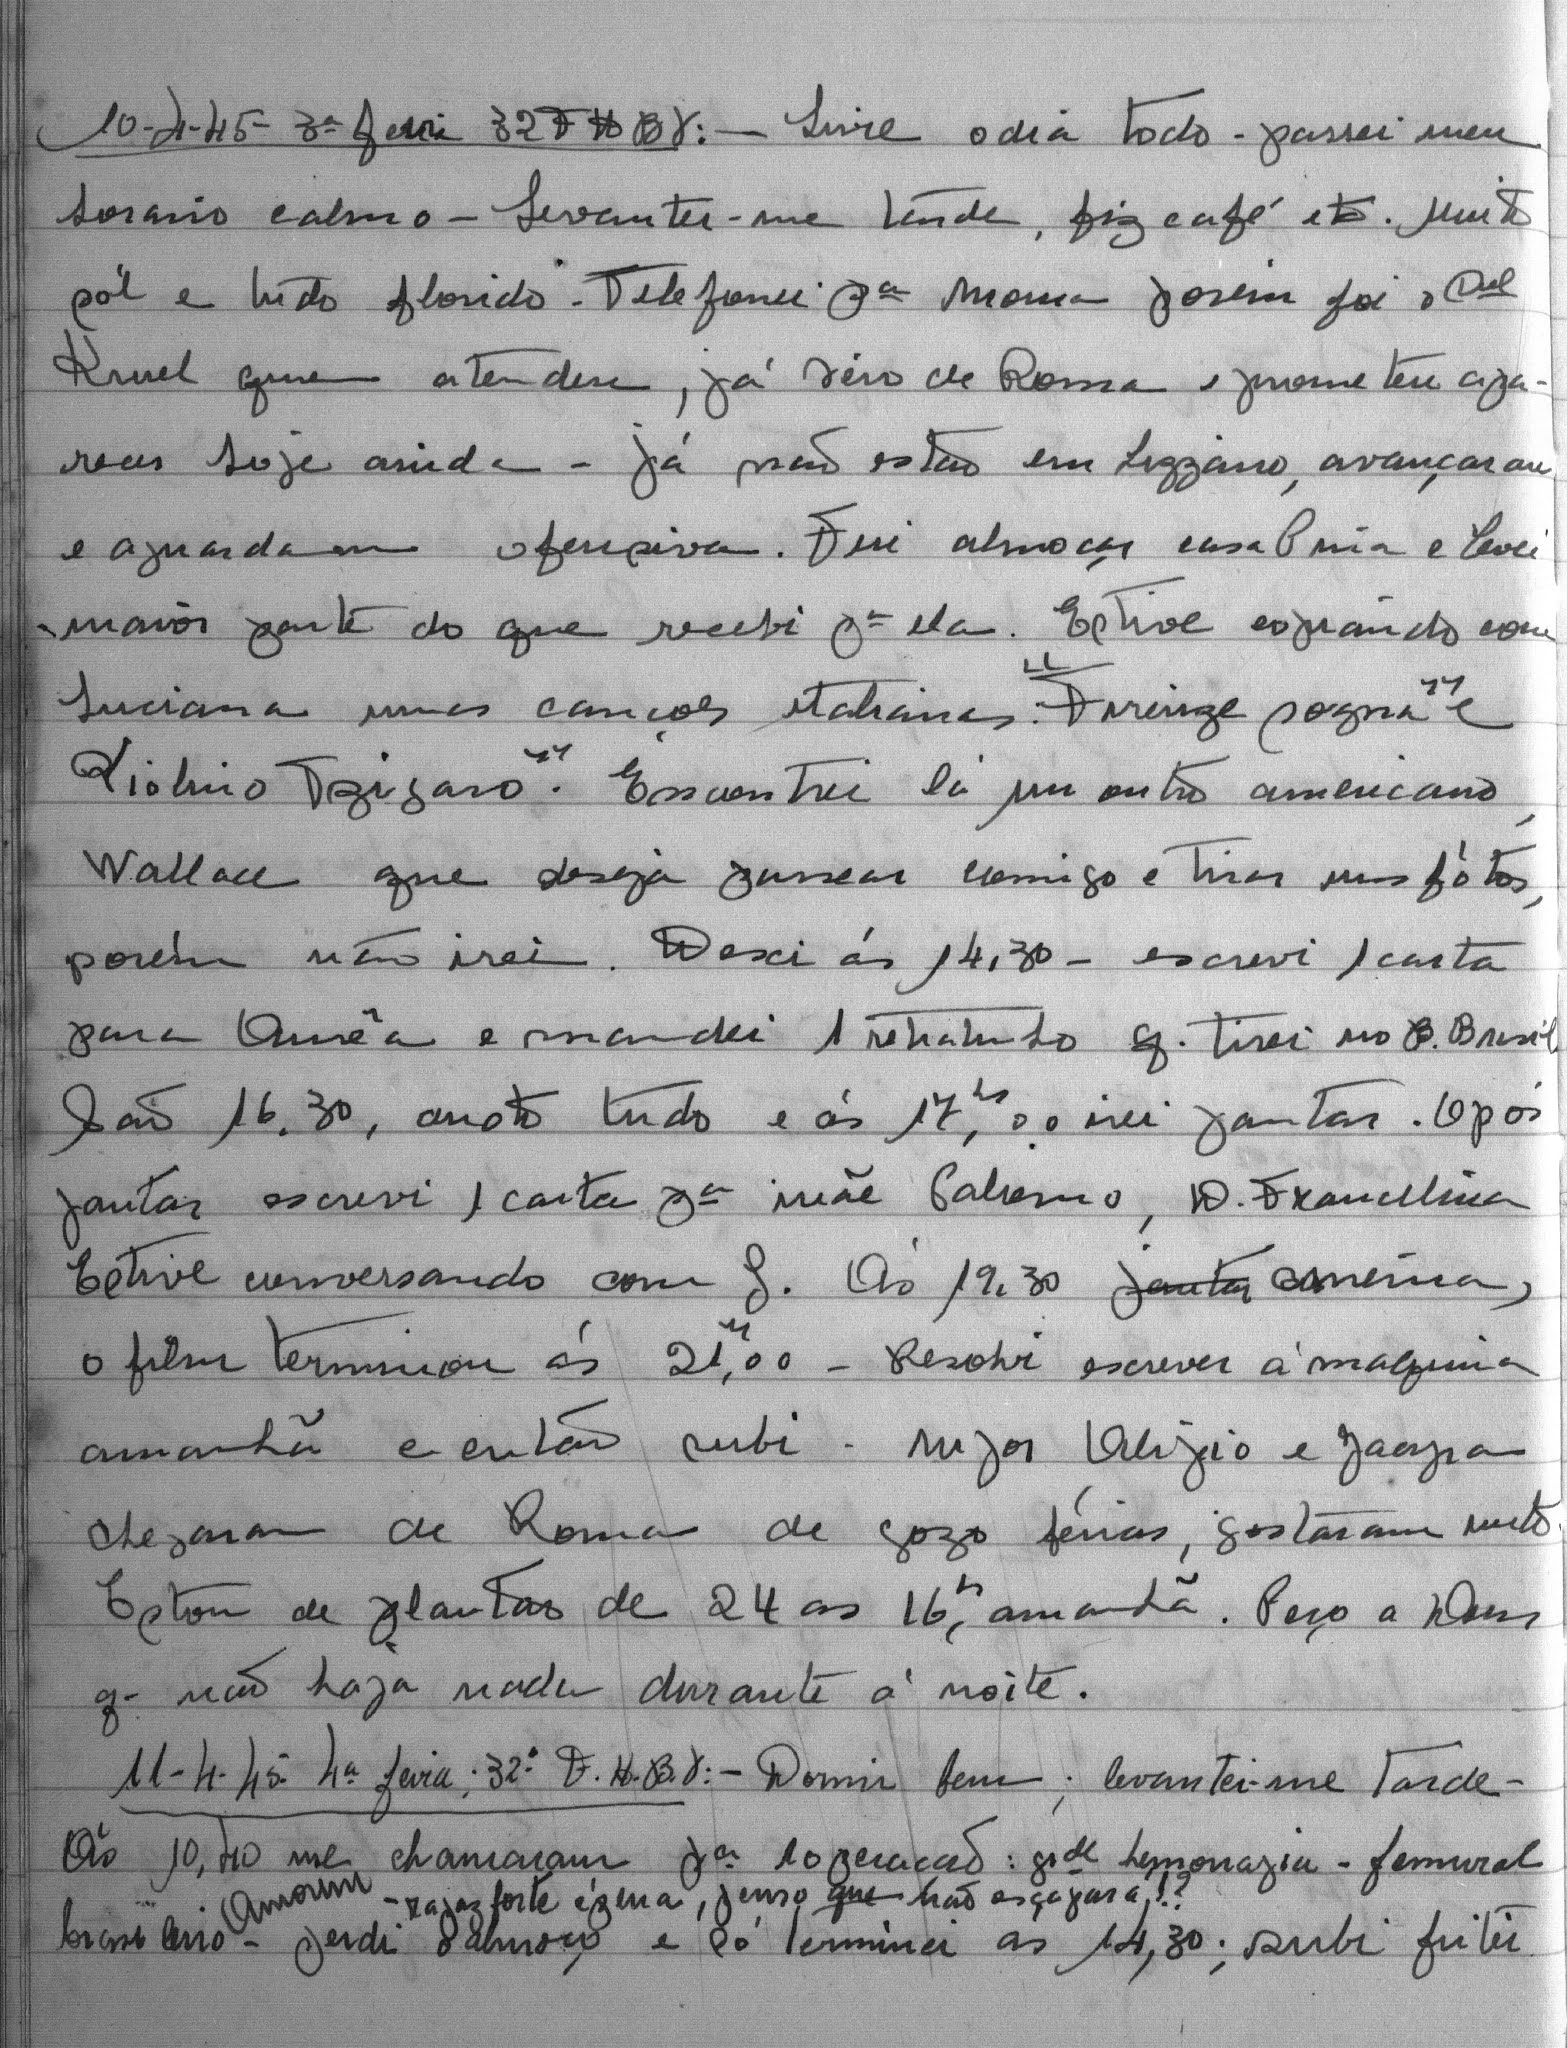 10-4-45- 3ª feira 32 F H B V: - Livre o dia todo - passei meu
horario calmo - Levantei-me tarde, fiz café etc. Muito
sól e tudo florido. Telefonei pª Moura porém foi o Cel
Kruel quem atendeu, já veio de Roma e prometeu apa-
recer hoje ainda - já não estão em Lizzano, avançaram
e aguardam ofensiva. Fui almoçar casa Pina e levei
maiór parte do que recebi pª ela. Estive copiando com
Luciana umas canções italianas: "Firenze sogna" e
Violino Tzigano". Encontrei lá um outro americano,
Wallace que deseja passear comigo e tirar uns fótos,
porém não irei. Desci ás 14,30 - escrevi 1 carta
para e mandei 1 retratinho q. tirei no B. Brasil
São 16,30, anoto tudo e ás 17hs,00 irei jantar. Após
jantar escrevi 1 carta pª mãe Palermo, D. Francelina
Estive conversando com G. Ás 19,30 jantar cinema,
o film terminou ás 21,00 - Resolvi escrever á maquina
amanhã e então subi - Major e
chegaram de Roma de gozo férias, gostaram muito.
Estou de plantão de 24 as 16hs, amanhã. Peço a Deus
q. não haja nada durante á noite.
11-4-45 4ª feira; 32º F. H. B. V: - Dormi bem; levantei-me tarde -
Ás 10,40 me chamaram pª 1 operação: gde hemorragia - femural
Amorim - rapaz forte é pena, penso que não escapará,!?
brasileiro - perdi o almoço e só terminei as 14,30; subi